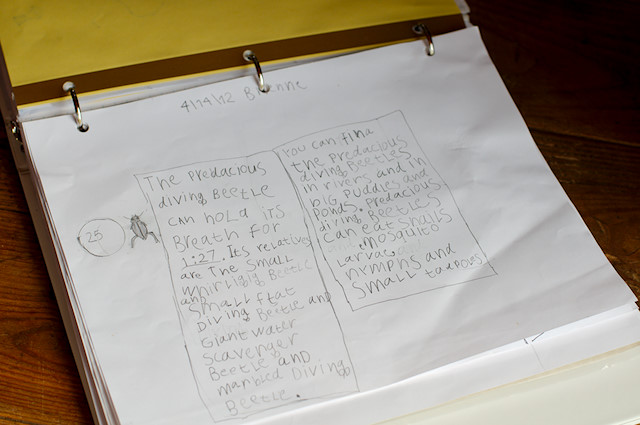 4/14/12 Brynne
25
The predacious
diving Beetle
can hold its
Breath for
1:27. Its relatives
are The small
whirligig Beetle
and
small flat
Diving Beetle and
Giant water
scavenger
Beetle and
marbled Diving
Beetle.
You can find
the predacious
diving BeeTLes
in rivers and in
big puddles and
ponds. Predacious
diving BeeTLes
can eat snails
mosquito
Larvae
nymphs and
small tadpoles